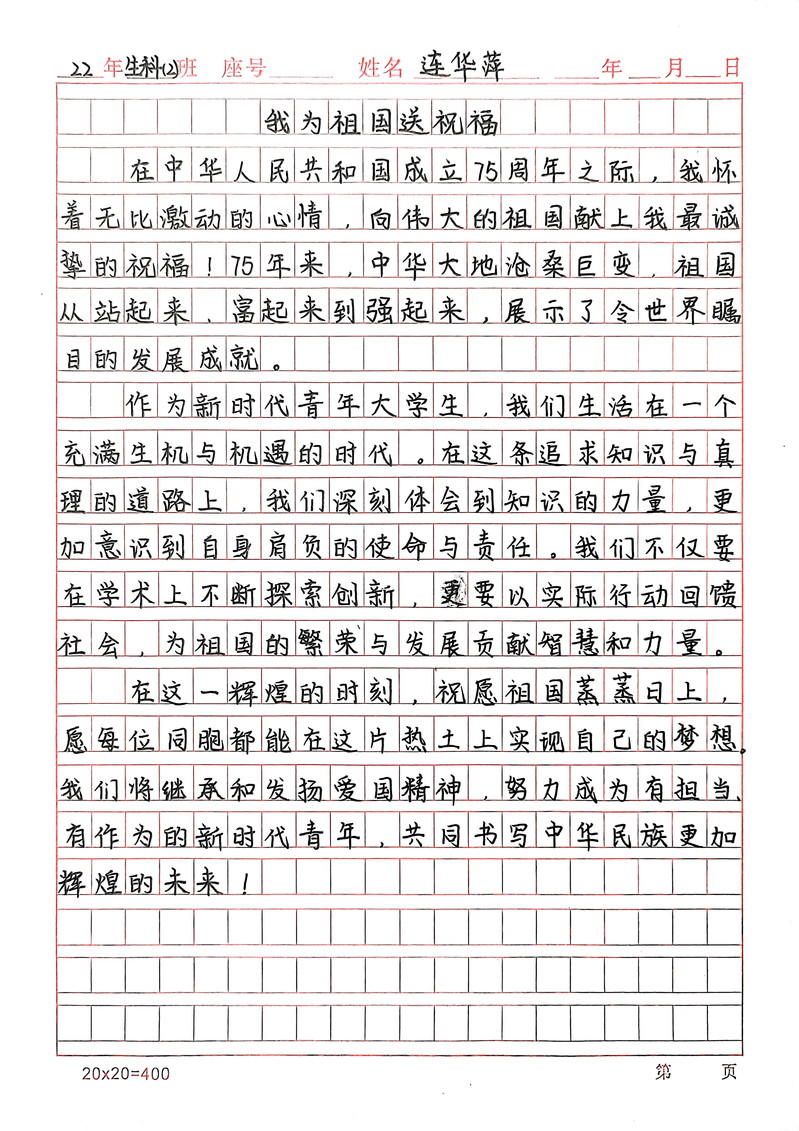 22年生科(2)班 座号 姓名 连华萍 年 月 日
我为祖国送祝福
在中华人民共和国成立75周年之际，我怀
着无比激动的心情，向伟大的祖国献上我最诚
挚的祝福！75年来，中华大地沧桑巨变，祖国
从站起来、富起来到强起来，展示了令世界瞩
目的发展成就。
作为新时代青年大学生，我们生活在一个
充满生机与机遇的时代。在这条追求知识与真
理的道路上，我们深刻体会到知识的力量，更
加意识到自身肩负的使命与责任。我们不仅要
在学术上不断探索创新，更要以实际行动回馈
社会，为祖国的繁荣与发展贡献智慧和力量。
在这一辉煌的时刻，祝愿祖国蒸蒸日上，
愿每位同胞都能在这片热土上实现自己的梦想。
我们将继承和发扬爱国精神，努力成为有担当、
有作为的新时代青年，共同书写中华民族更加
辉煌的未来！
20x20=400 第 页